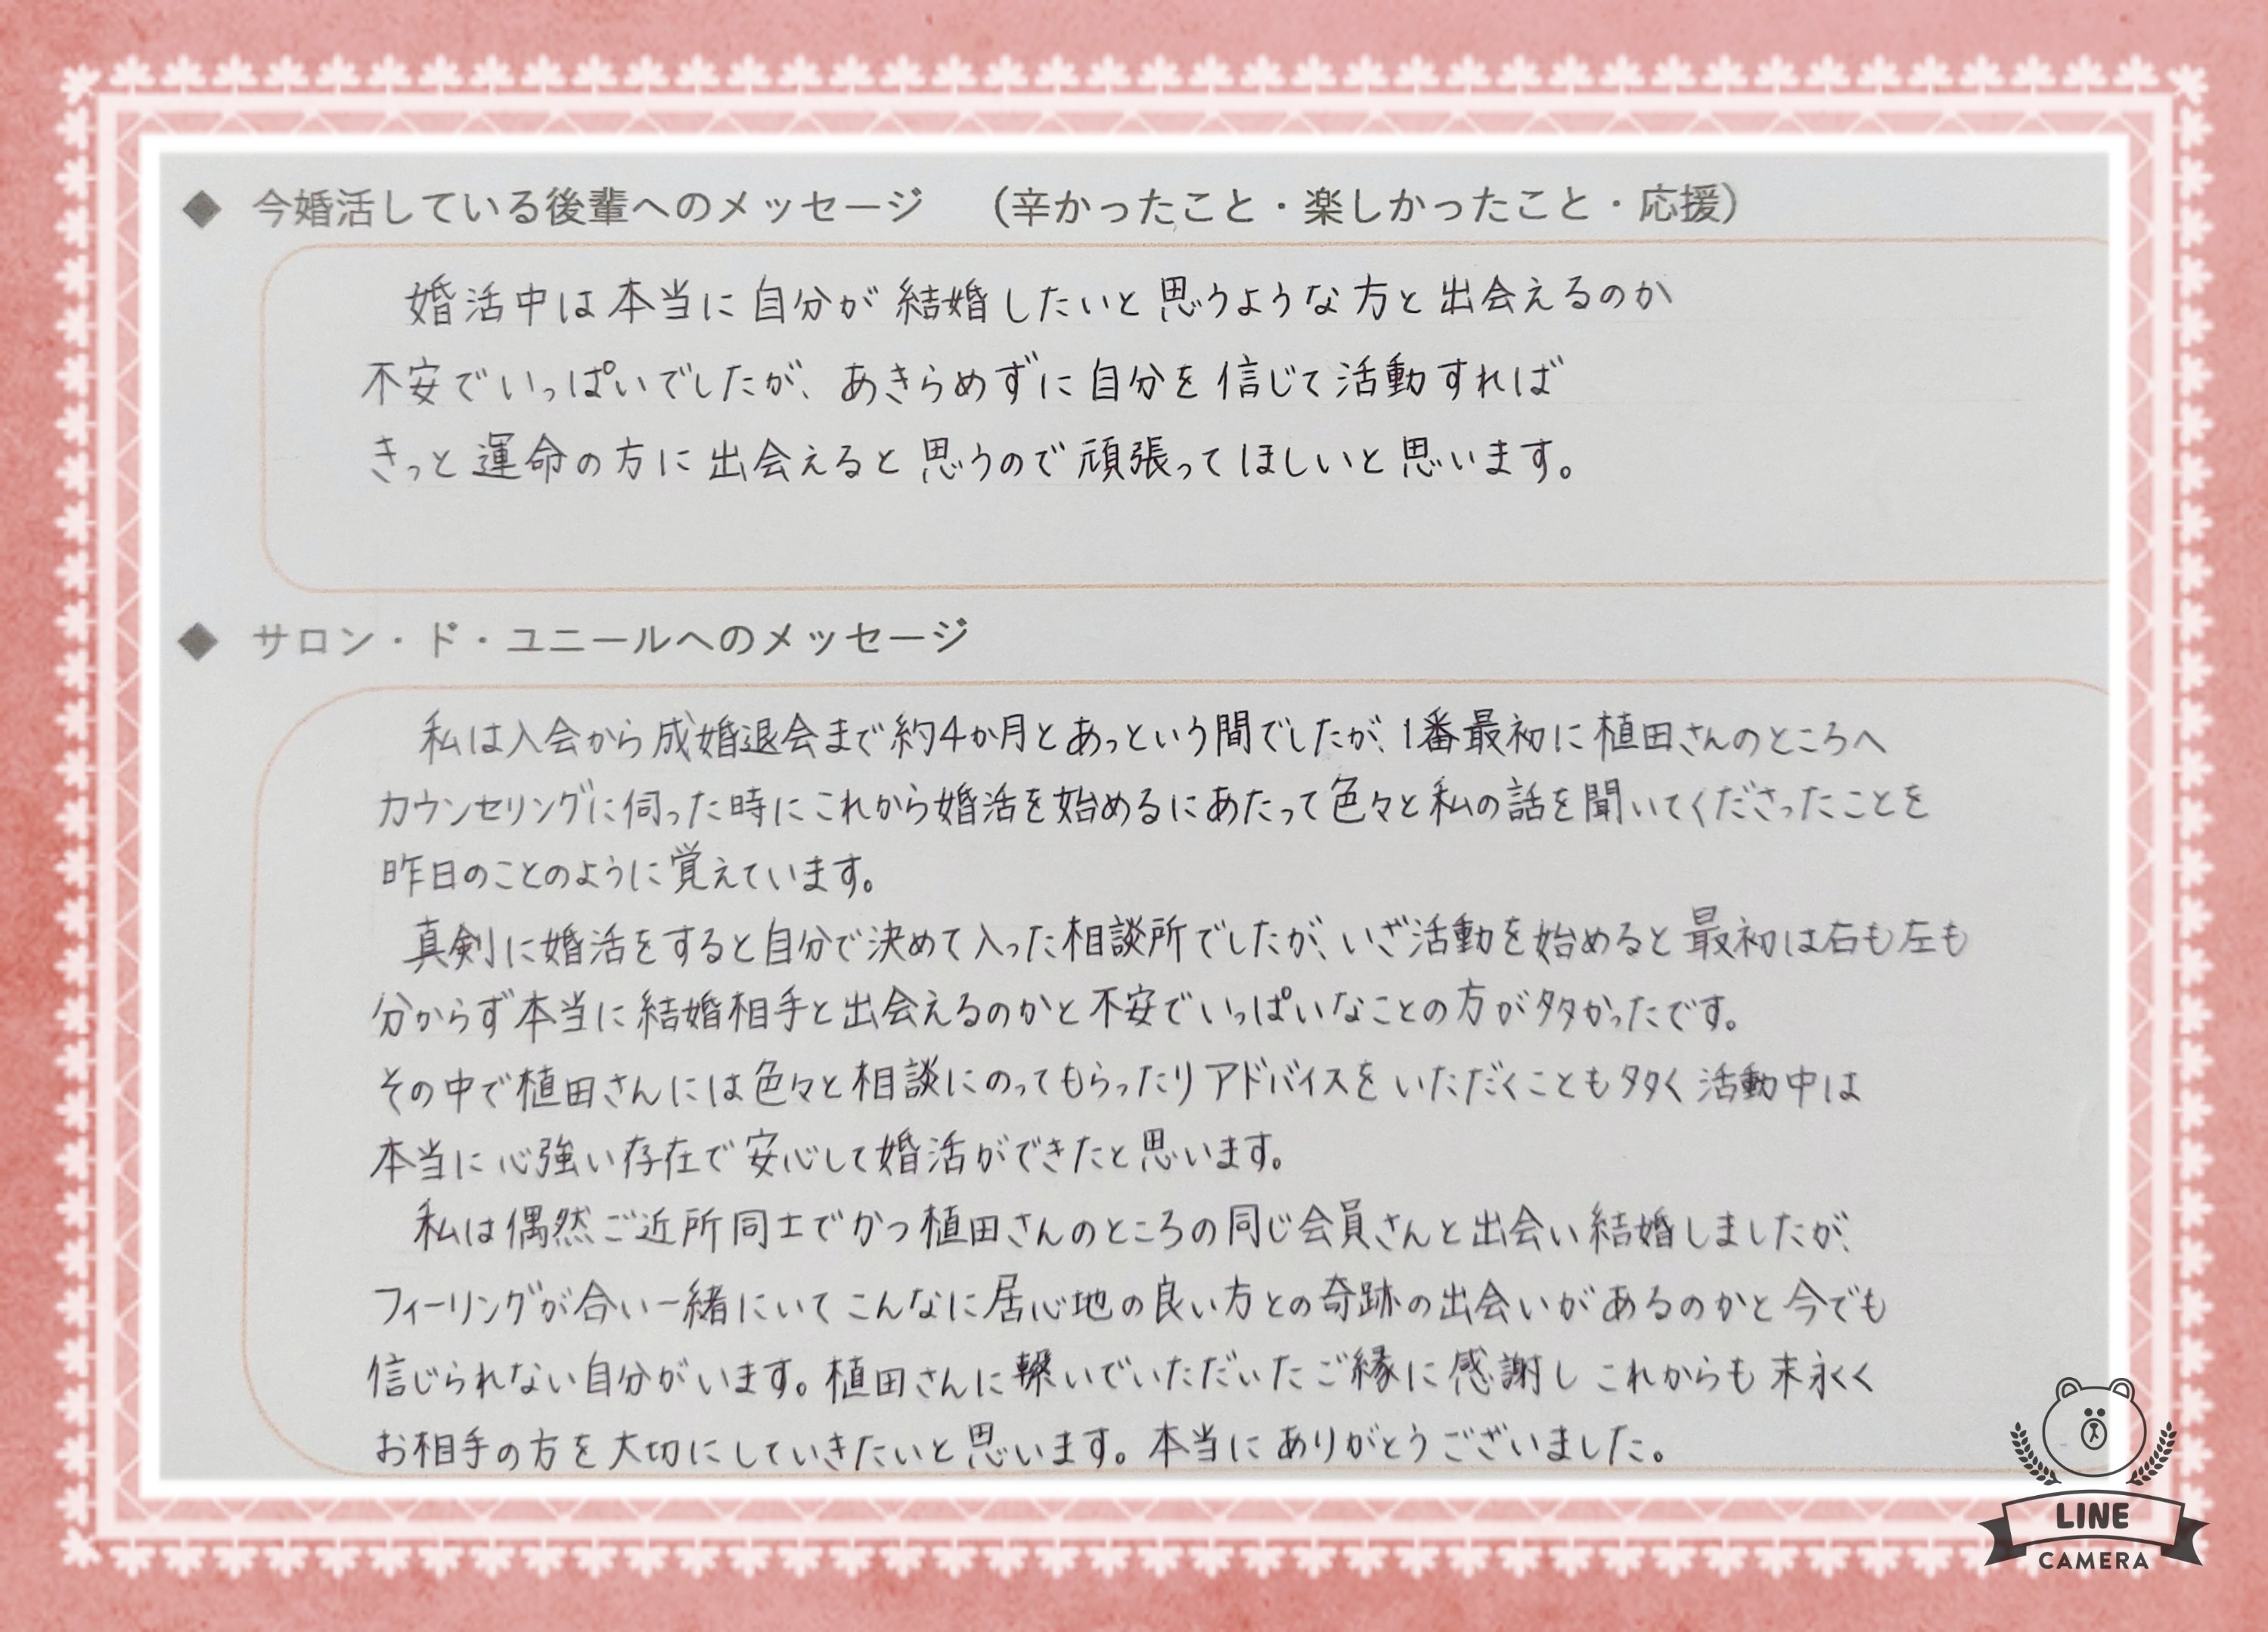 ◆ 今婚活している後輩へのメッセージ （辛かったこと・楽しかったこと・応援）
婚活中は本当に自分が結婚したいと思うような方と出会えるのか
不安でいっぱいでしたが、あきらめずに自分を信じて活動すれば
きっと運命の方に出会えると思うので頑張ってほしいと思います。
◆ サロン・ド・ユニールへのメッセージ
私は入会から成婚退会まで約4か月とあっという間でしたが、1番最初に植田さんのところへ
カウンセリングに伺った時にこれから婚活を始めるにあたって色々と私の話を聞いてくださったことを
昨日のことのように覚えています。
真剣に婚活をすると自分で決めて入った相談所でしたが、いざ活動を始めると最初は右も左も
分からず本当に結婚相手と出会えるのかと不安でいっぱいなことの方が多かったです。
その中で植田さんには色々と相談にのってもらったりアドバイスをいただくことも多く活動中は
本当に心強い存在で安心して婚活ができたと思います。
私は偶然ご近所同士でかつ植田さんのところの同じ会員さんと出会い結婚しましたが、
フィーリングが合い一緒にいてこんなに居心地の良い方との奇跡の出会いがあるのかと今でも
信じられない自分がいます。植田さんに繋いでいただいたご縁に感謝しこれからも末永く
お相手の方を大切にしていきたいと思います。本当にありがとうございました。
LINE
CAMERA